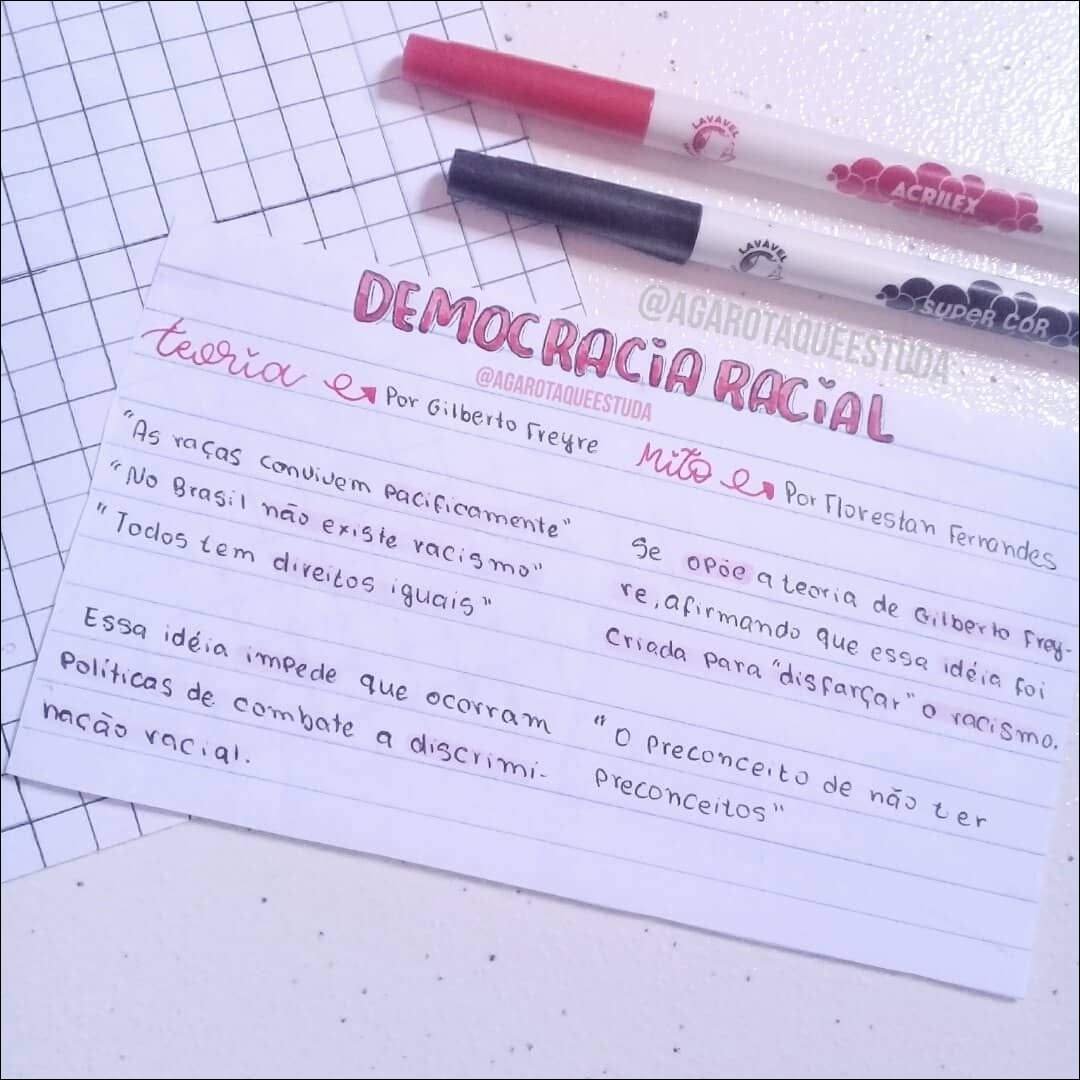 LAVÁVEL
ACRILEX
LAVÁVEL
SUPER COR
@AGAROTAQUEESTUDA
DEMOCRACIA RACIAL
@AGAROTAQUEESTUDA
teoria Por Gilberto Freyre
"As raças convivem pacificamente"
"No Brasil não existe racismo"
"Todos tem direitos iguais"
Essa idéia impede que ocorram
Políticas de combate a discrimi-
nação racial.
Mito Por Florestan Fernandes
Se opõe a teoria de Gilberto Frey-
re, afirmando que essa idéia foi
Criada para "disfarçar" o racismo.
"O preconceito de não ter
preconceitos"